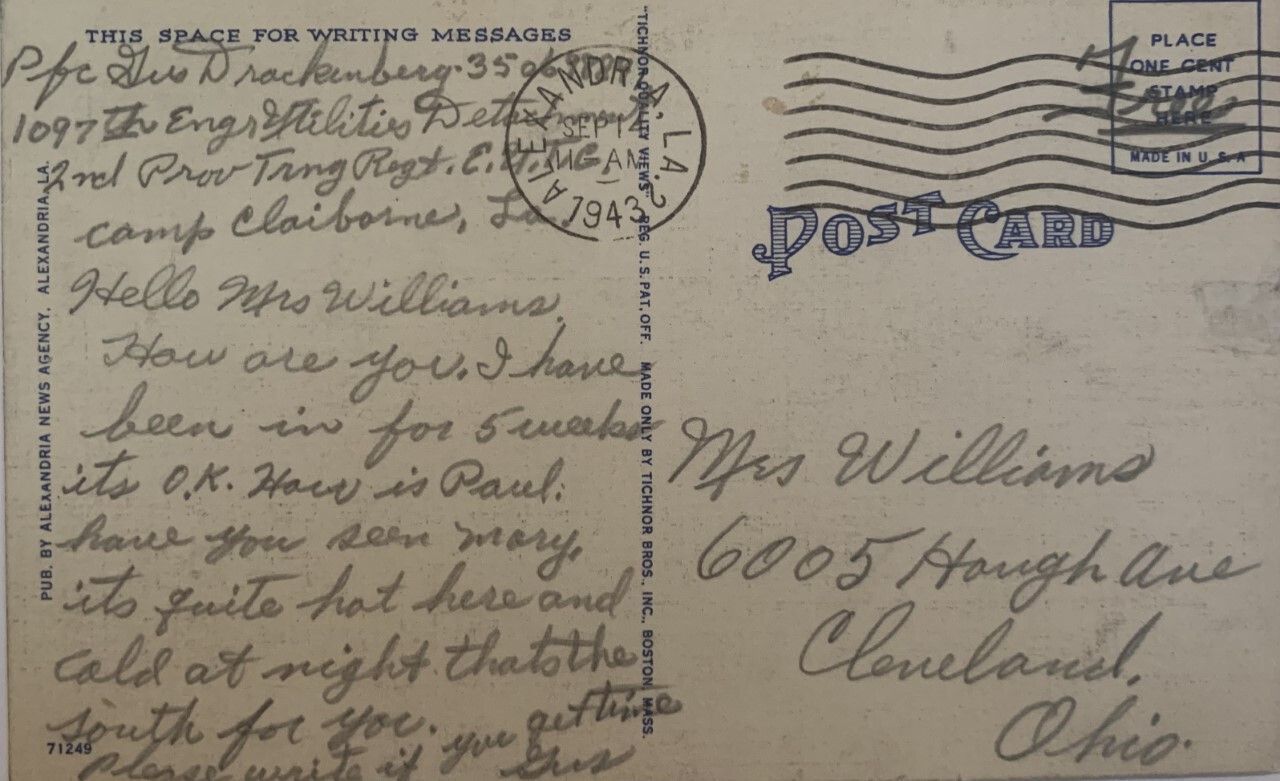 THIS SPACE FOR WRITING MESSAGES
Pfc Gus Drackenberg. 3506
1097th Engr Utilities
2nd Prov Trng Regt. E.U.T.C.
camp Claiborne, La.
Hello Mrs Williams,
How are you. I have
been in for 5 weeks
its O.K. How is Paul.
have you seen mary,
its quite hot here and
cold at night thats the
south for you.
Please write if you get time
Gus
71249
PUB. BY ALEXANDRIA NEWS AGENCY, ALEXANDRIA, LA.
"TICHNOR QUALITY VIEWS" REG. U. S. PAT. OFF. MADE ONLY BY TICHNOR BROS., INC., BOSTON, MASS.
ALEXANDRIA, LA. 2
SEP 14
AM
1943
PLACE
ONE CENT
STAMP
HERE
MADE IN U. S. A
Free
POST CARD
Mrs Williams
6005 Hough Ave
Cleveland,
Ohio.